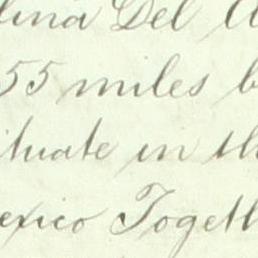 lina Del A
55 miles b
ituate in th
exico Togeth